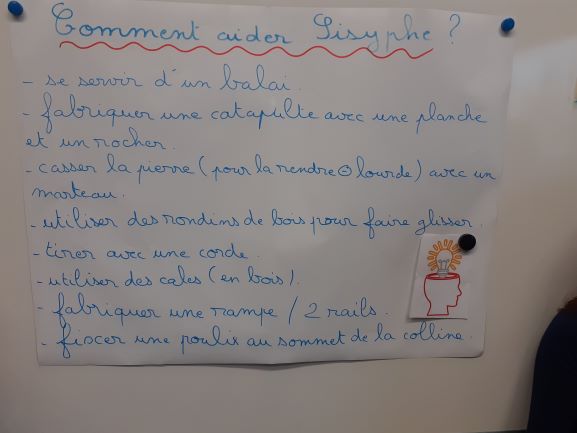 Comment aider Sisyphe ?
- se servir d'un balai.
- fabriquer une catapulte avec une planche
et un rocher.
- casser la pierre (pour la rendre ⊖ lourde) avec un
marteau.
- utiliser des rondins de bois pour faire glisser.
- tirer avec une corde.
- utiliser des cales (en bois).
- fabriquer une rampe / 2 rails.
- fixer une poulie au sommet de la colline.